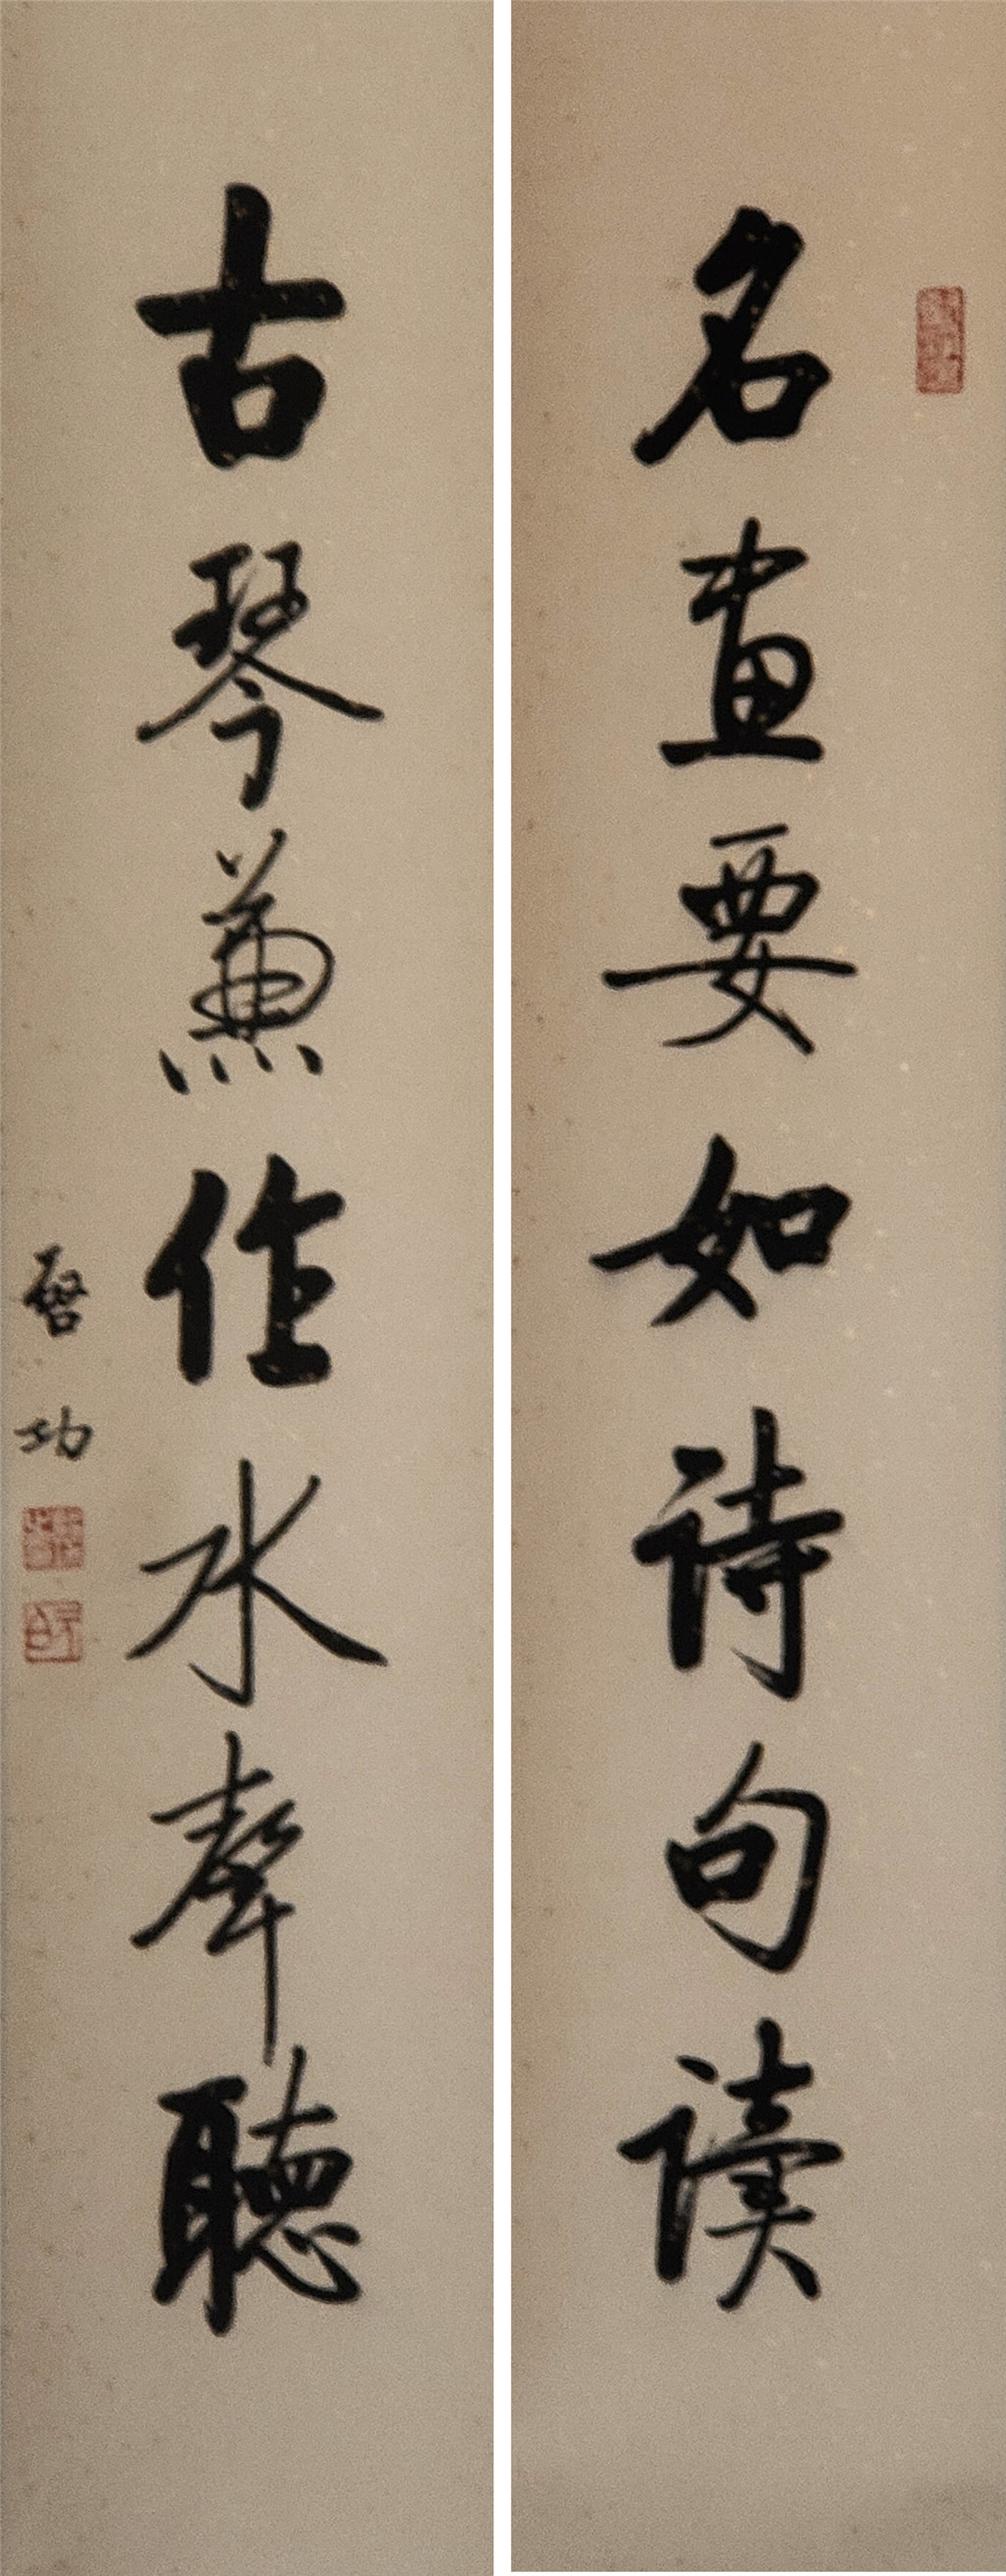 名画要如诗句读
古琴兼作水聲聽
啓功